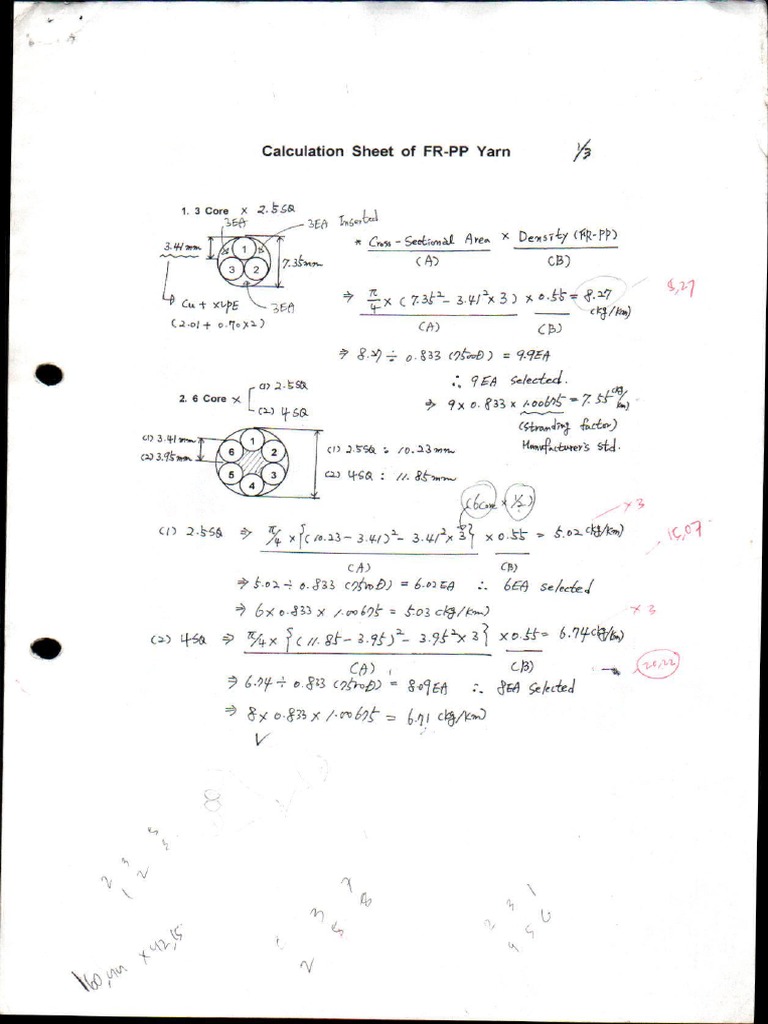 Calculation Sheet of FR-PP Yarn 1/3
1. 3 Core × 2.5SQ
3EA 3EA Inserted
3.41mm 1 2 3 7.35mm
* Cross-Sectional Area × Density (FR-PP)
(A) (B)
Cu + XLPE 3EA
(2.01 + 0.70×2)
⇒ π/4 × (7.35² - 3.41² × 3) × 0.55 = 8.27 (kg/km) 8,27
(A) (B)
⇒ 8.27 ÷ 0.833 (7500D) = 9.9EA
∴ 9EA selected.
⇒ 9 × 0.833 × 1.00675 = 7.55 (kg/km)
(stranding factor)
Manufacturer's std.
2. 6 Core × (1) 2.5SQ
(2) 4SQ
(1) 3.41mm
(2) 3.95mm
1 2 3 4 5 6
(1) 2.5SQ : 10.23mm
(2) 4SQ : 11.85mm
(6core × 1/2)
(1) 2.5SQ ⇒ π/4 × {(10.23 - 3.41)² - 3.41² × 3} × 0.55 = 5.02 (kg/km) ×3
15,07
(A) (B)
⇒ 5.02 ÷ 0.833 (7500D) = 6.02EA ∴ 6EA selected
⇒ 6 × 0.833 × 1.00675 = 5.03 (kg/km)
×3
(2) 4SQ ⇒ π/4 × {(11.85 - 3.95)² - 3.95² × 3} × 0.55 = 6.74 (kg/km)
(A) (B) 20,22
⇒ 6.74 ÷ 0.833 (7500D) = 8.09EA ∴ 8EA selected
⇒ 8 × 0.833 × 1.00675 = 6.71 (kg/km)
8
2 3
1 2
2 3 1
4 5 6
×42,15